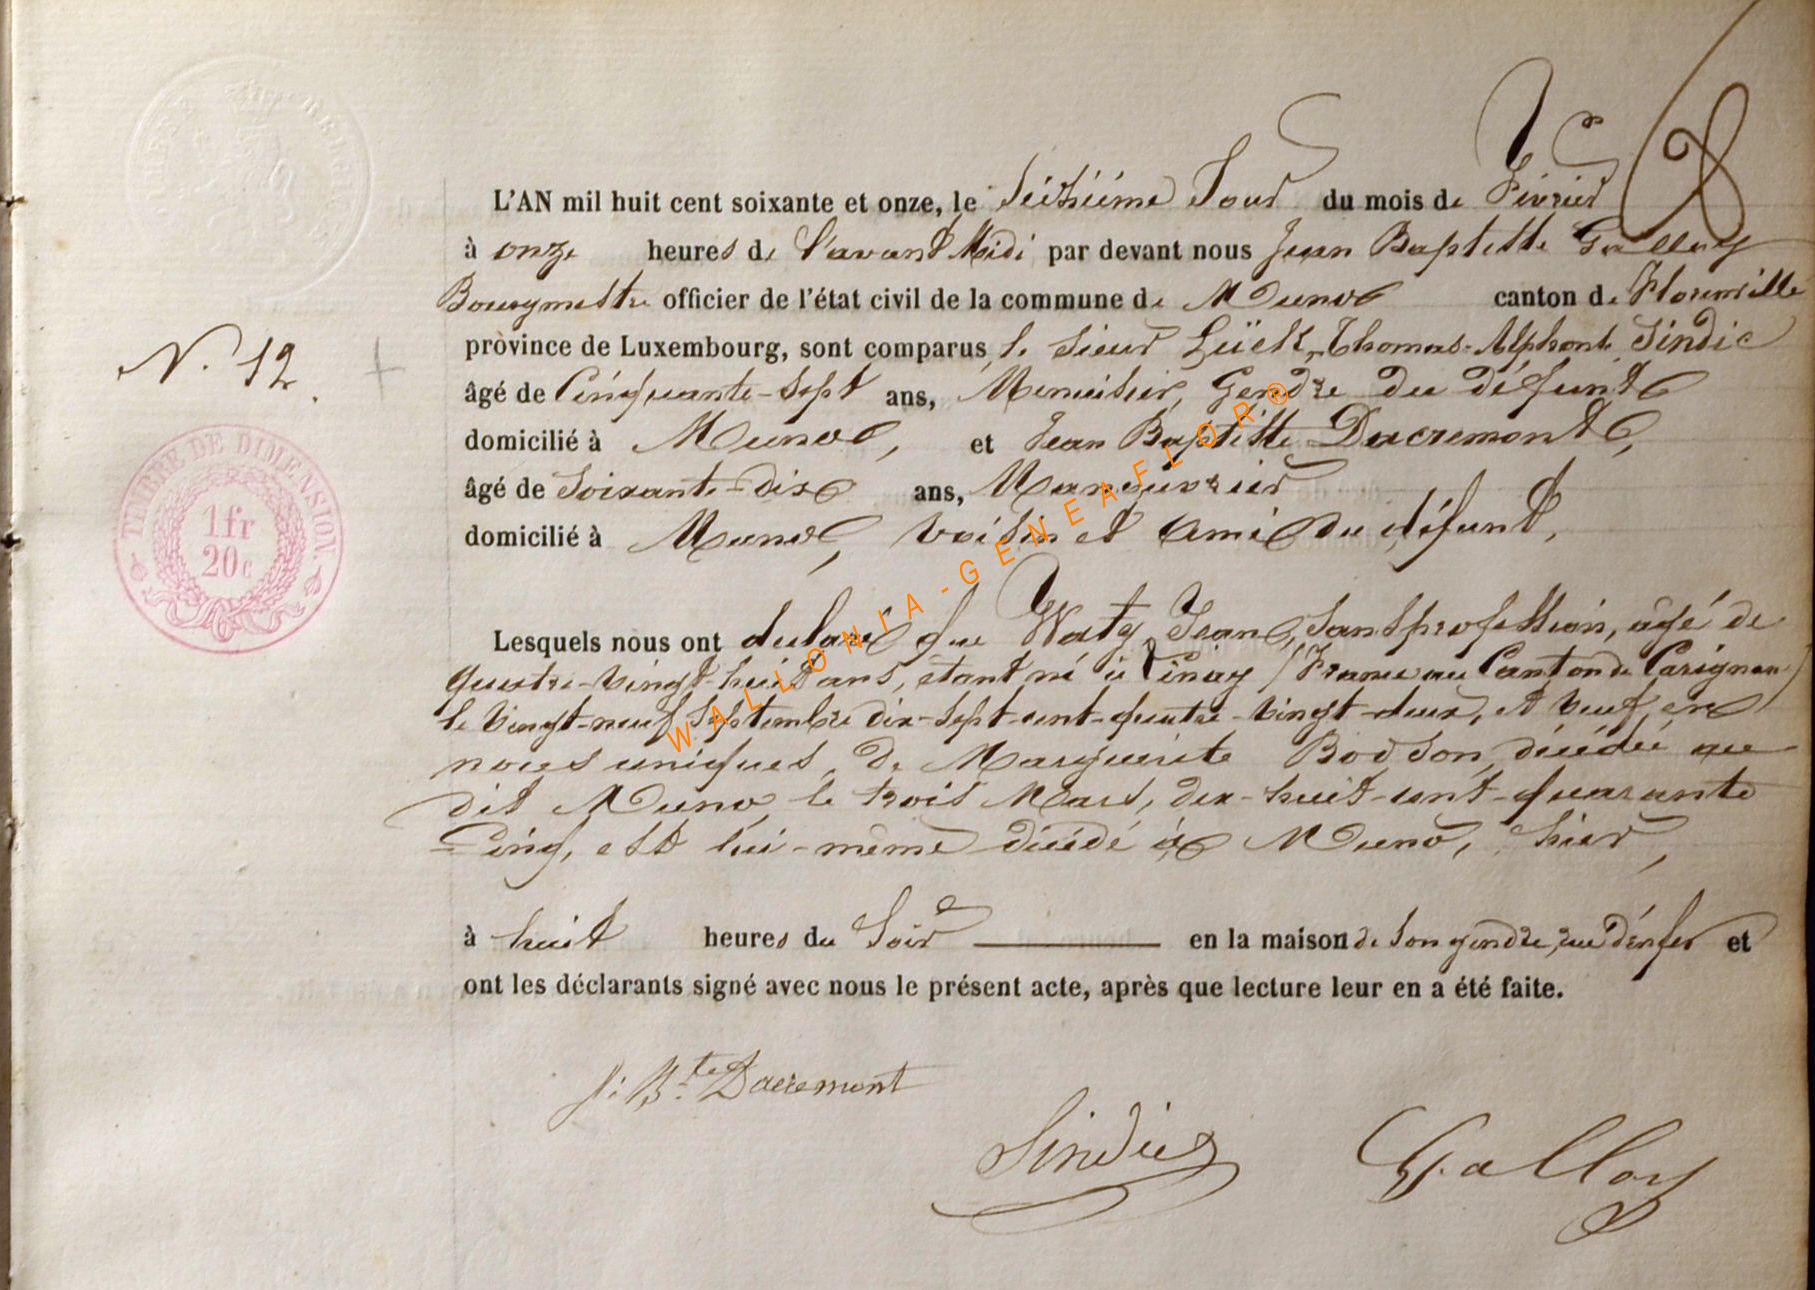 L'AN mil huit cent soixante et onze, le Seizième Jour du mois de Février
à onze heures de l'avant Midi par devant nous Jean Baptiste Galloy
Bourgmestre officier de l'état civil de la commune de Muno canton de Florenville
province de Luxembourg, sont comparus le Sieur Thomas-Alphonse Sindic
N.° 12
âgé de Cinquante-Sept ans, Menuisier, Gendre du défunt
domicilié à Muno, et Jean Baptiste Dacremont,
âgé de Soixante-dix ans, Manouvrier
domicilié à Muno, voisin et ami du défunt,
TIMBRE DE DIMENSION.
1 fr
20 c
WALLONIA-GENEAFLOR®
Lesquels nous ont déclaré que Waty, Jean, Sans profession, âgé de
quatre-vingt-huit ans, étant né à (France au Canton de Carignan)
le vingt-neuf Septembre dix-Sept-cent-quatre-vingt-deux, et veuf, en
noces uniques, de Marguerite Bodson, décédée au
dit Muno le trois Mars, dix-huit-cent-quarante
Cinq, est lui-même décédé à Muno, hier,
à huit heures du Soir en la maison de Son gendre, rue d'enfer et
ont les déclarants signé avec nous le présent acte, après que lecture leur en a été faite.
J: B.te Dacremont
Sindic
Galloy